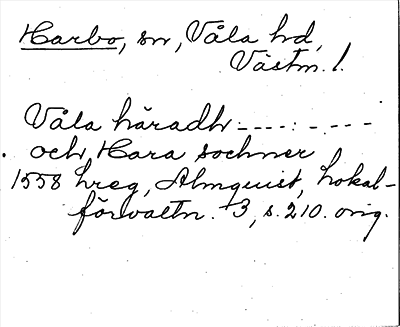 Harbo, sn, Våla hd,
Västm. l.
Våla häradh - - - - : - - - -
och Hara sochner
1558 hreg, Almquist, Lokal-
förvaltn. 3, s. 210. orig.